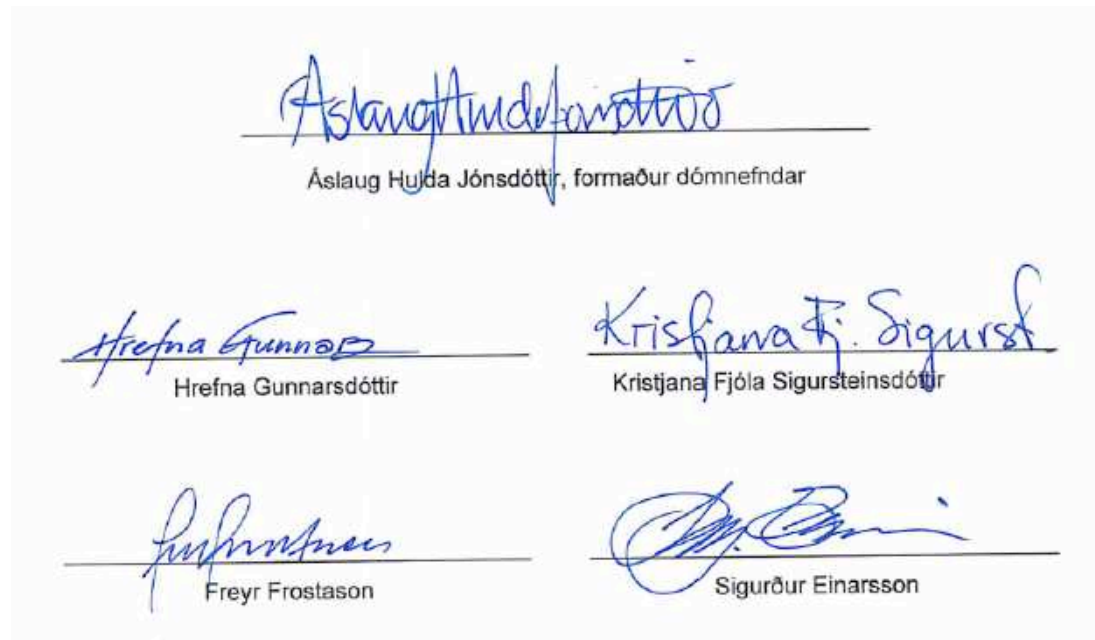 Áslaug Hulda Jónsdóttir
Áslaug Hulda Jónsdóttir, formaður dómnefndar
Hrefna Gunnarsd
Kristjana Fj. Sigurst
Hrefna Gunnarsdóttir
Kristjana Fjóla Sigursteinsdóttir
Freyr Frostason
Sigurður Einarsson